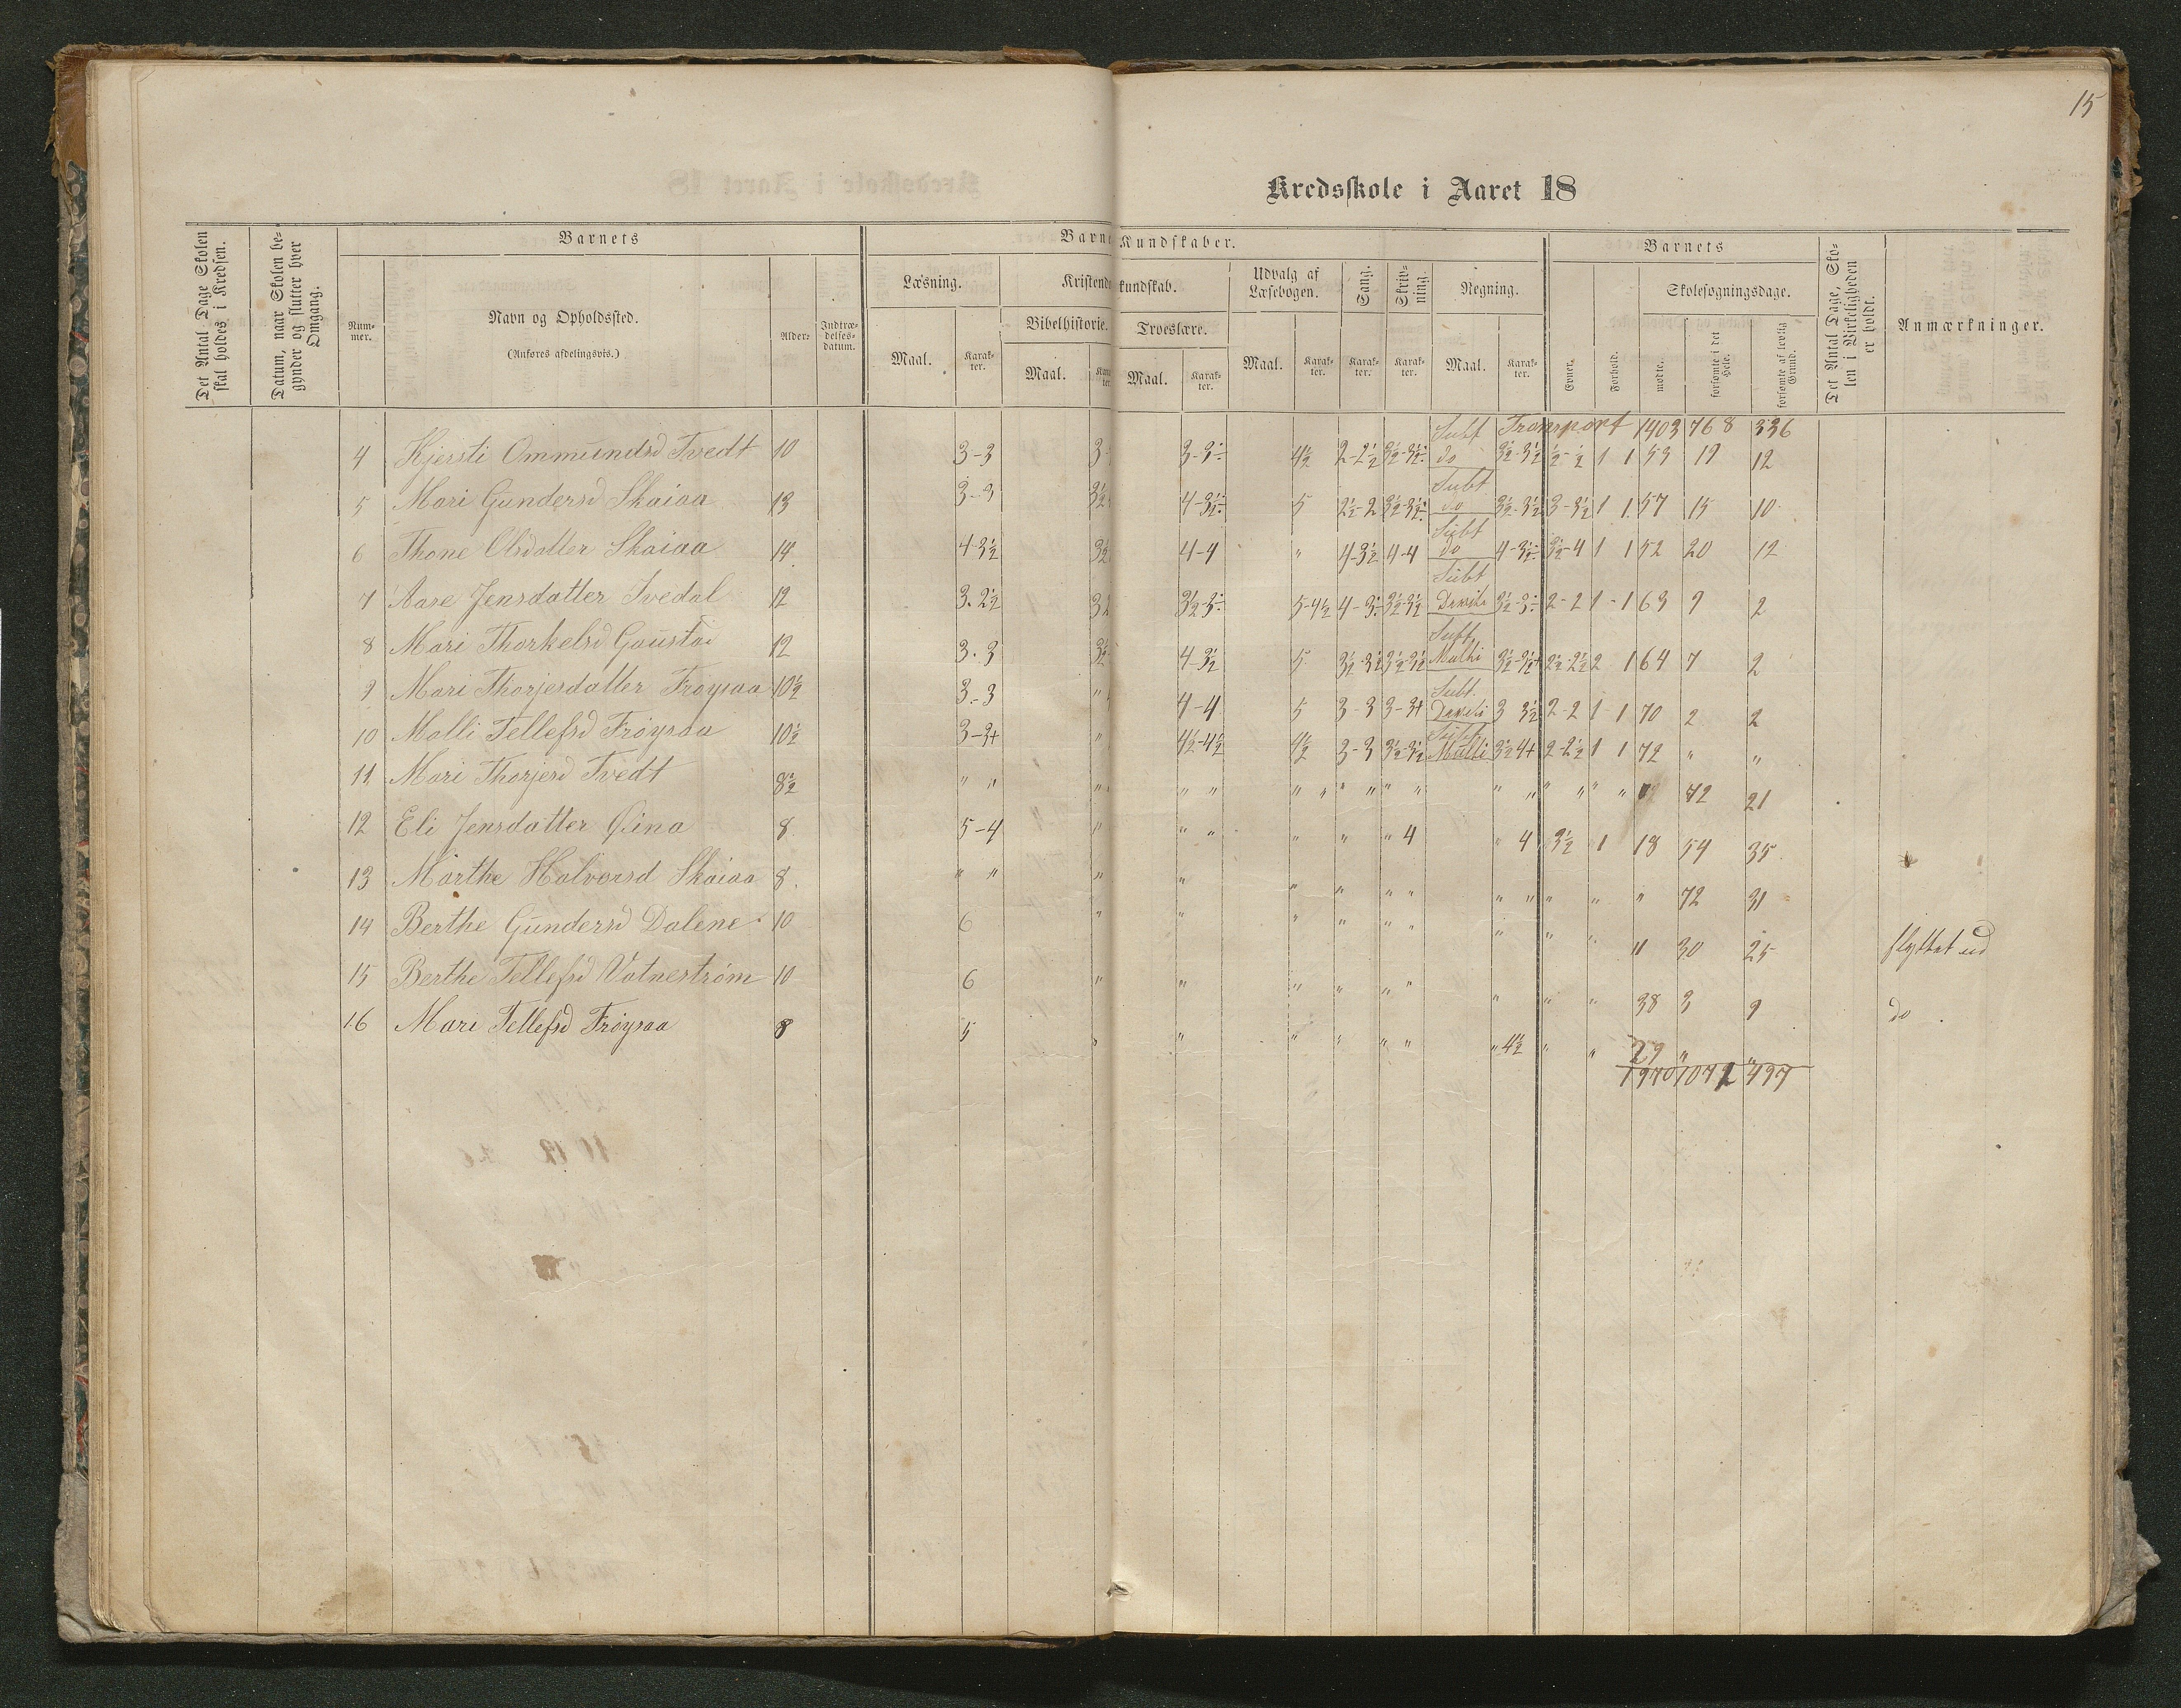 15
Kredsskole i Aaret 18
Det Antal Dage Skolen skal holdes i Kredsen.
Datum, naar Skolen begynder og slutter hver Omgang.
Barnets
Nummer.
Navn og Opholdssted.
(Anføres afdelingsvis.)
Alder.
Indtrædelsesdatum.
Barne Kundskaber.
Læsning.
Maal. Karakter.
Kristend kundskab.
Bibelhistorie.
Maal.
Troeslære.
Maal. Karakter.
Udvalg af Læsebogen.
Maal. Karakter.
Sang.
Karakter.
Skrivning.
Karakter.
Regning.
Maal. Karakter.
Barnets
Evner.
Forhold.
Skolesøgningsdage.
mødte.
forsømte i det Hele.
forsømte af lovlig Grund.
Det Antal Dage, Skolen i Virkeligheden er holdt.
Anmærkninger.
Transport 1403 768 336
4 Kjersti Ommundsd Tvedt 10 3-3 3-3÷ 4½ 2-2½ 3½-3½÷ Subt do 3½-3½ 1 1 53 19 12
5 Mari Gundersd Skaiaa 13 3-3 3½ 4-3½÷ 5 2½-2 3½-3½÷ Subt do 3½-3½ 3-3½ 1 1 57 15 10
6 Thone Olsdatter Skaiaa 14 4-3½ 3½ 4-4 " 4-3½ 4-4 Subt do 4-3½÷ 3½-4 1 1 52 20 12
7 Aase Jensdatter Tvedal 12 3-2½ 3½-3÷ 5-4½ 4-3÷ 3½-3½ Subt 3½-3÷ 2-2 1-1 63 9 2
8 Mari Thorkelsd Goustad 12 3-3 3½ 4-3½ 5 3½-3½ 3½-3½ Subt Multi 3½-3½+ 2½-2½ 2 1 64 7 2
9 Mari Thorjesdatter Frøysaa 10½ 3-3 " 4-4 5 3-3 3-3+ Subt 3 3½ 2-2 1-1 70 2 2
10 Malli Tellefsd Frøysaa 10½ 3-3+ " 4½-4½ 4½ 3-3 3½-3½ Subt Multi 3½ 4+ 2-2½ 1 1 72 " "
11 Mari Thorjesd Tvedt 8½ " " " " " " " " " " " " " " " " 72 21
12 Eli Jensdatter Øina 8 5-4 " " " " " " 4 " 4 3½ 1 18 54 35
13 Marthe Halvorsd Skaiaa 8 " " " " " " " " " " " " " 72 31
14 Berthe Gundersd Dalene 10 6 " " " " " " " " " " 30 25 flyttet ud
15 Berthe Tellefsd Vatnestrøm 10 6 " " " " " " " " " 38 3 9 do
16 Mari Tellefsd Frøysaa 8 5 " " " " " " " 4½ " " " "
1970 1071 497